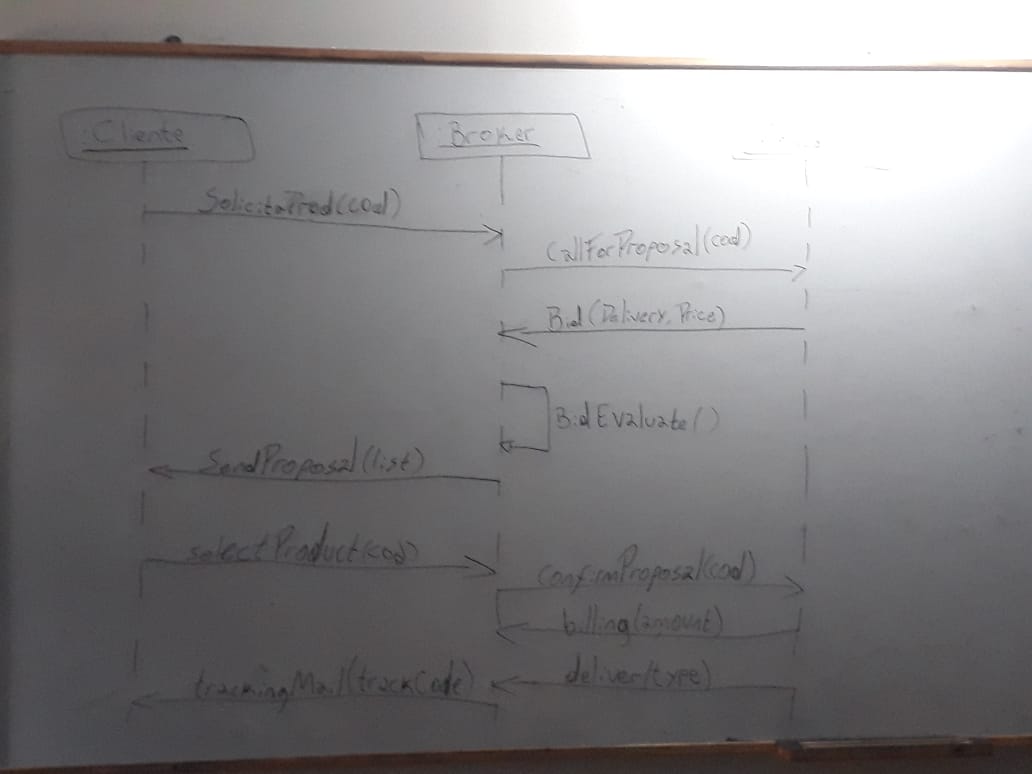 :Cliente
:Broker
SolicitaProd(cod)
CallForProposal(cod)
Bid(Delivery, Price)
BidEvaluate()
SendProposal(list)
selectProduct(cod)
confirmProposal(cod)
billing(amount)
deliver(type)
trackingMail(trackCode)